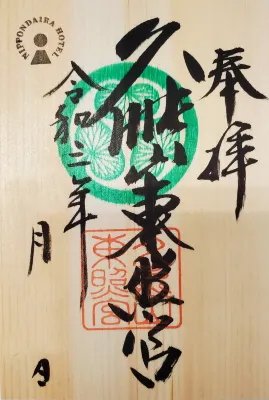 奉拝
久能山東照宮
令和三年
月 日
NIPPONDAIRA HOTEL
久能山
東照宮